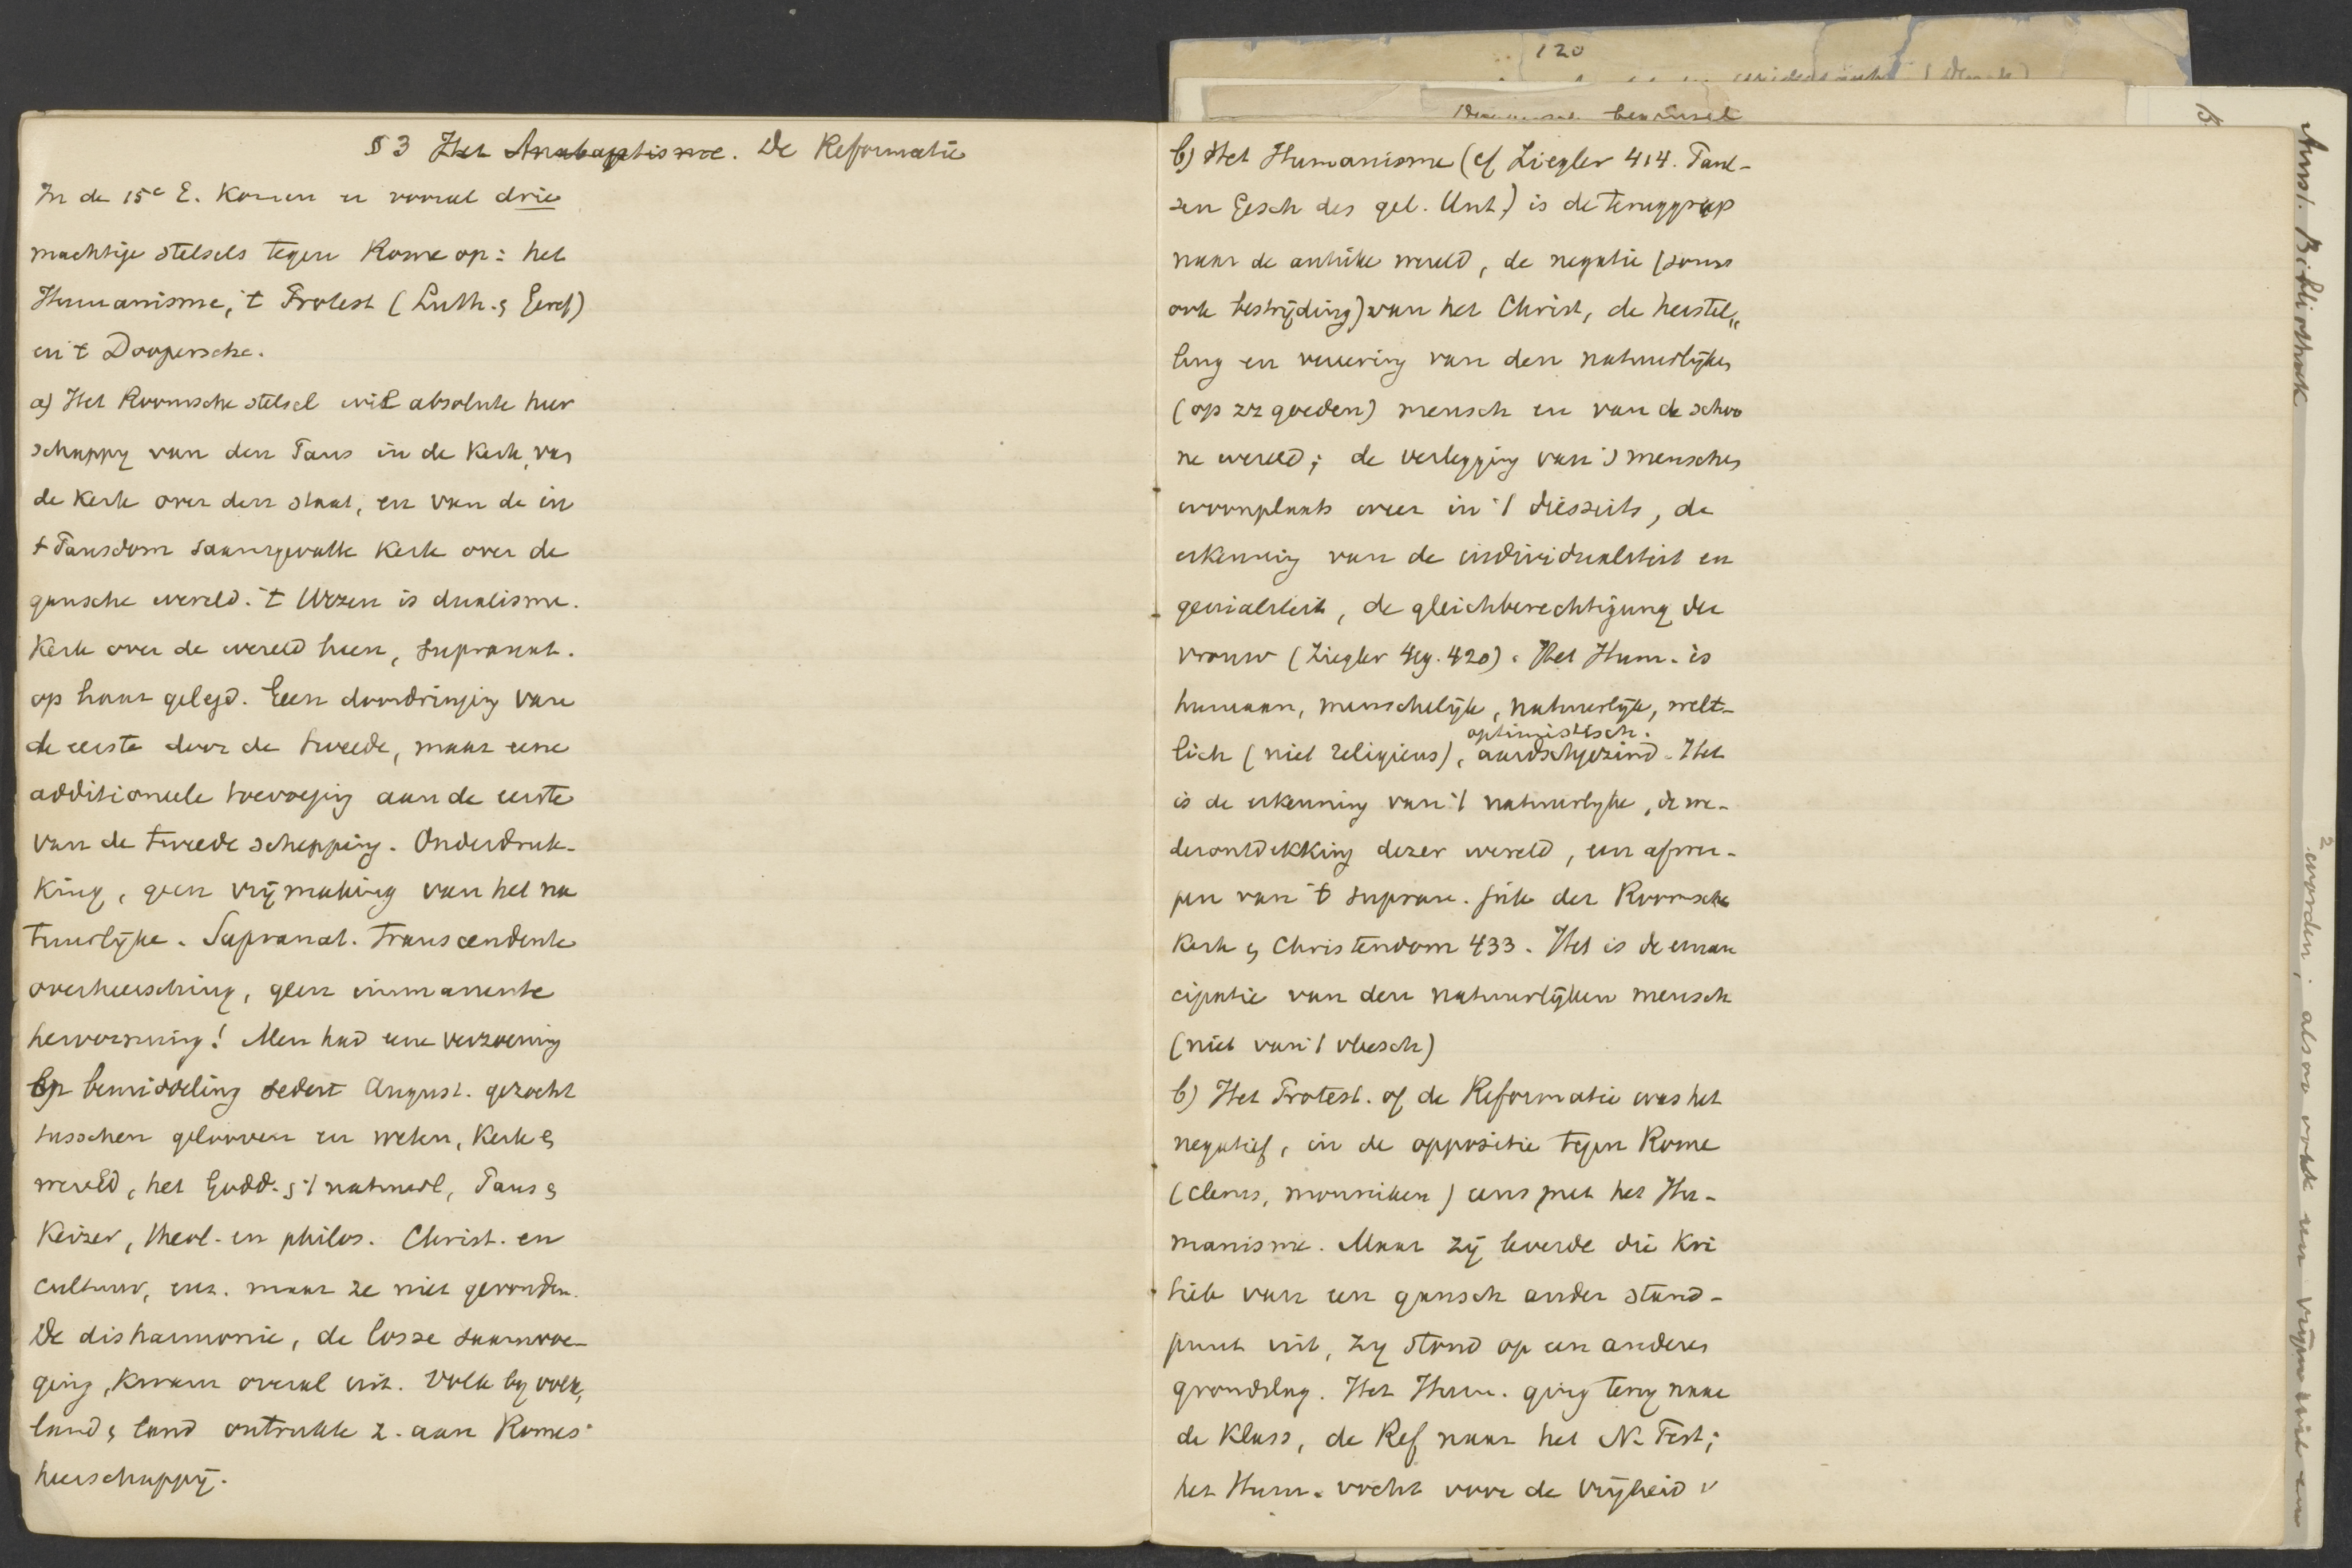 § 3 Het Anabaptisme. De Reformatie
In de 15e E. komen er vooral drie
machtige stelsels tegen Rome op: het
Humanisme, 't Protest (Luth. & Geref)
en 't Doopersche.
a) Het Roomsche stelsel wil absolute heer
schappy van den Paus in de Kerk, van
de Kerk over den staat, en van de in
't Pausdom saamgevatte Kerk over de
gansche wereld. 't Wezen is dualisme.
Kerk over de wereld heen, supranat.
op haar gelegd. Geen doordringing van
de eerste door de tweede, maar eene
additioneele toevoeging aan de eerste
van de tweede schepping. Onderdruk-
king, geen vrijmaking van het na
tuurlijke. Supranat. transcendente
overheersching, geen immanente
hervorming! Men had eene verzoening
bemiddeling sedert August. gezocht
tusschen gelooven en weten, Kerk &
wereld, het Godd. & 't natuurl, Paus &
Keizer, theol. en philos. Christ. en
cultuur, enz. maar ze niet gevonden.
De disharmonie, de losse saamvoe-
ging, kwam overal uit. Volk by volk,
land & land ontrukte z. aan Romes
heerschappij.
120
bewijsel
b) Het Humanisme (cf Ziegler 414. Paul-
sen Gesch des gel. Unt.) is de teruggreep
naar de antike wereld, de negatie (soms
ook bestrijding) van het Christ, de herstel„
ling en van den natuurlijken
(op zz goeden) mensch en van de schoo
ne wereld; de verlegging van 's menschen
woonplaats weer in 't diesseits, de
erkenning van de individualiteit en
genialiteit, de gleichberechtigung der
vrouw (Ziegler 419. 420). Het Hum. is
humaan, menschelijk, natuurlijk, welt-
optimistisch.
lich (niet religieus), aardschgezind. Het
is de erkenning van 't natuurlyke, de we-
derontdekking dezer wereld, een afwer-
pen van 't supran. juk der Roomsche
Kerk & Christendom 433. Het is de eman
cipatie van den natuurlijken mensch
(niet van 't vleesch)
b) Het Protest. of de Reformatie was het
negatief, in de oppositie tegen Rome
(clerus, monniken) eens met het Hu-
manisme. Maar zij leverde die kri
tiek van een gansch ander stand-
punt uit, zy stond op een anderen
grondslag. Het Hum. ging terug naar
de Klass, de Ref naar het N. Test;
het Hum. vocht voor de vrijheid v
15
Amst. Bibliotheek
2 worden; alsoo wordt een